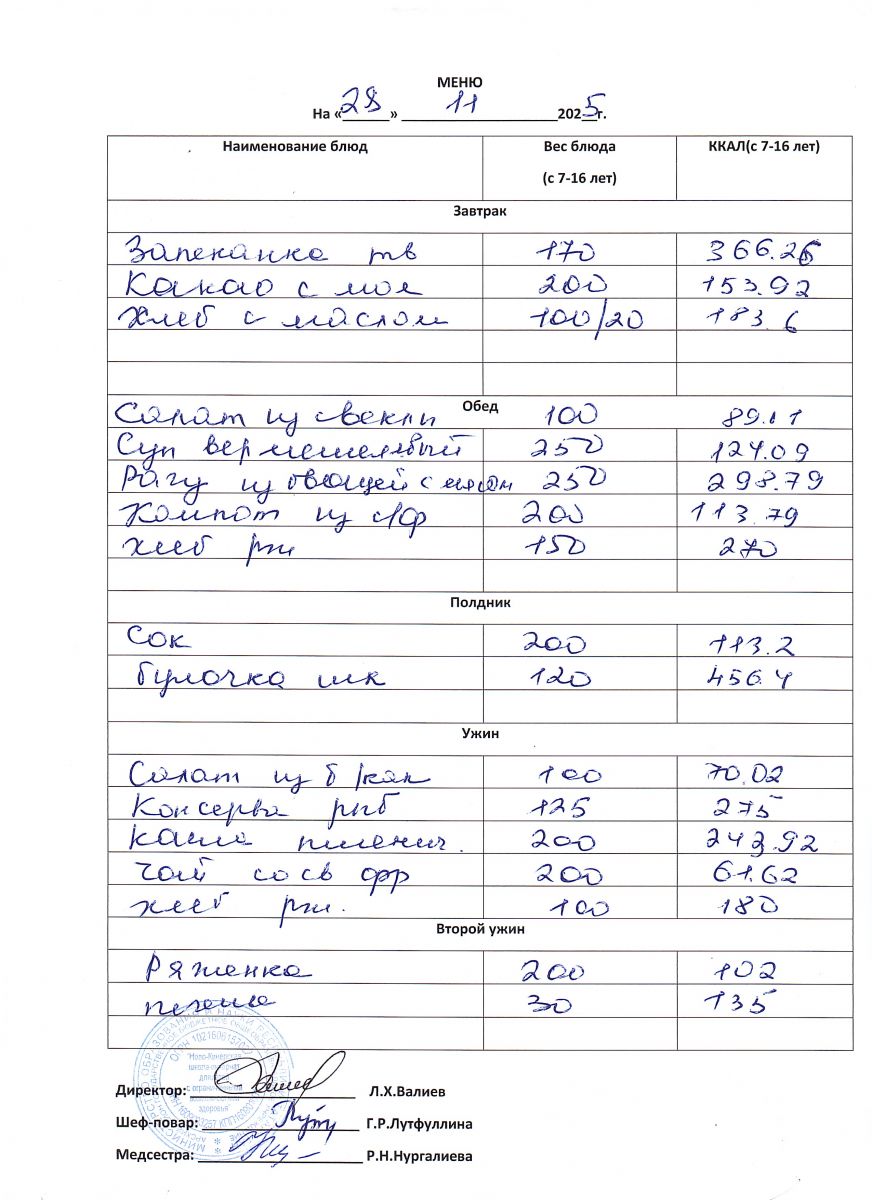 МЕНЮ
На «28» 11 2025 г.
Наименование блюд Вес блюда (с 7-16 лет) ККАЛ(с 7-16 лет)
Завтрак
Запеканка тв 170 366.26
Какао с мол 200 153.92
Хлеб с маслом 100/20 183.6
Обед
Салат из свеклы 100 89.11
Суп вермишелевый 250 124.09
Рагу из овощей с мясом 250 298.79
Компот из с/ф 200 113.79
хлеб рж 150 270
Полдник
Сок 200 113.2
булочка шк 120 456.4
Ужин
Салат из б/кап 100 70.02
Консерва рыб 125 275
Каша пшенич. 200 243.92
Чай со св фр 200 61.62
хлеб рж. 100 180
Второй ужин
Ряженка 200 102
печенье 30 135
Директор: Л.Х.Валиев
Шеф-повар: Г.Р.Лутфуллина
Медсестра: Р.Н.Нургалиева